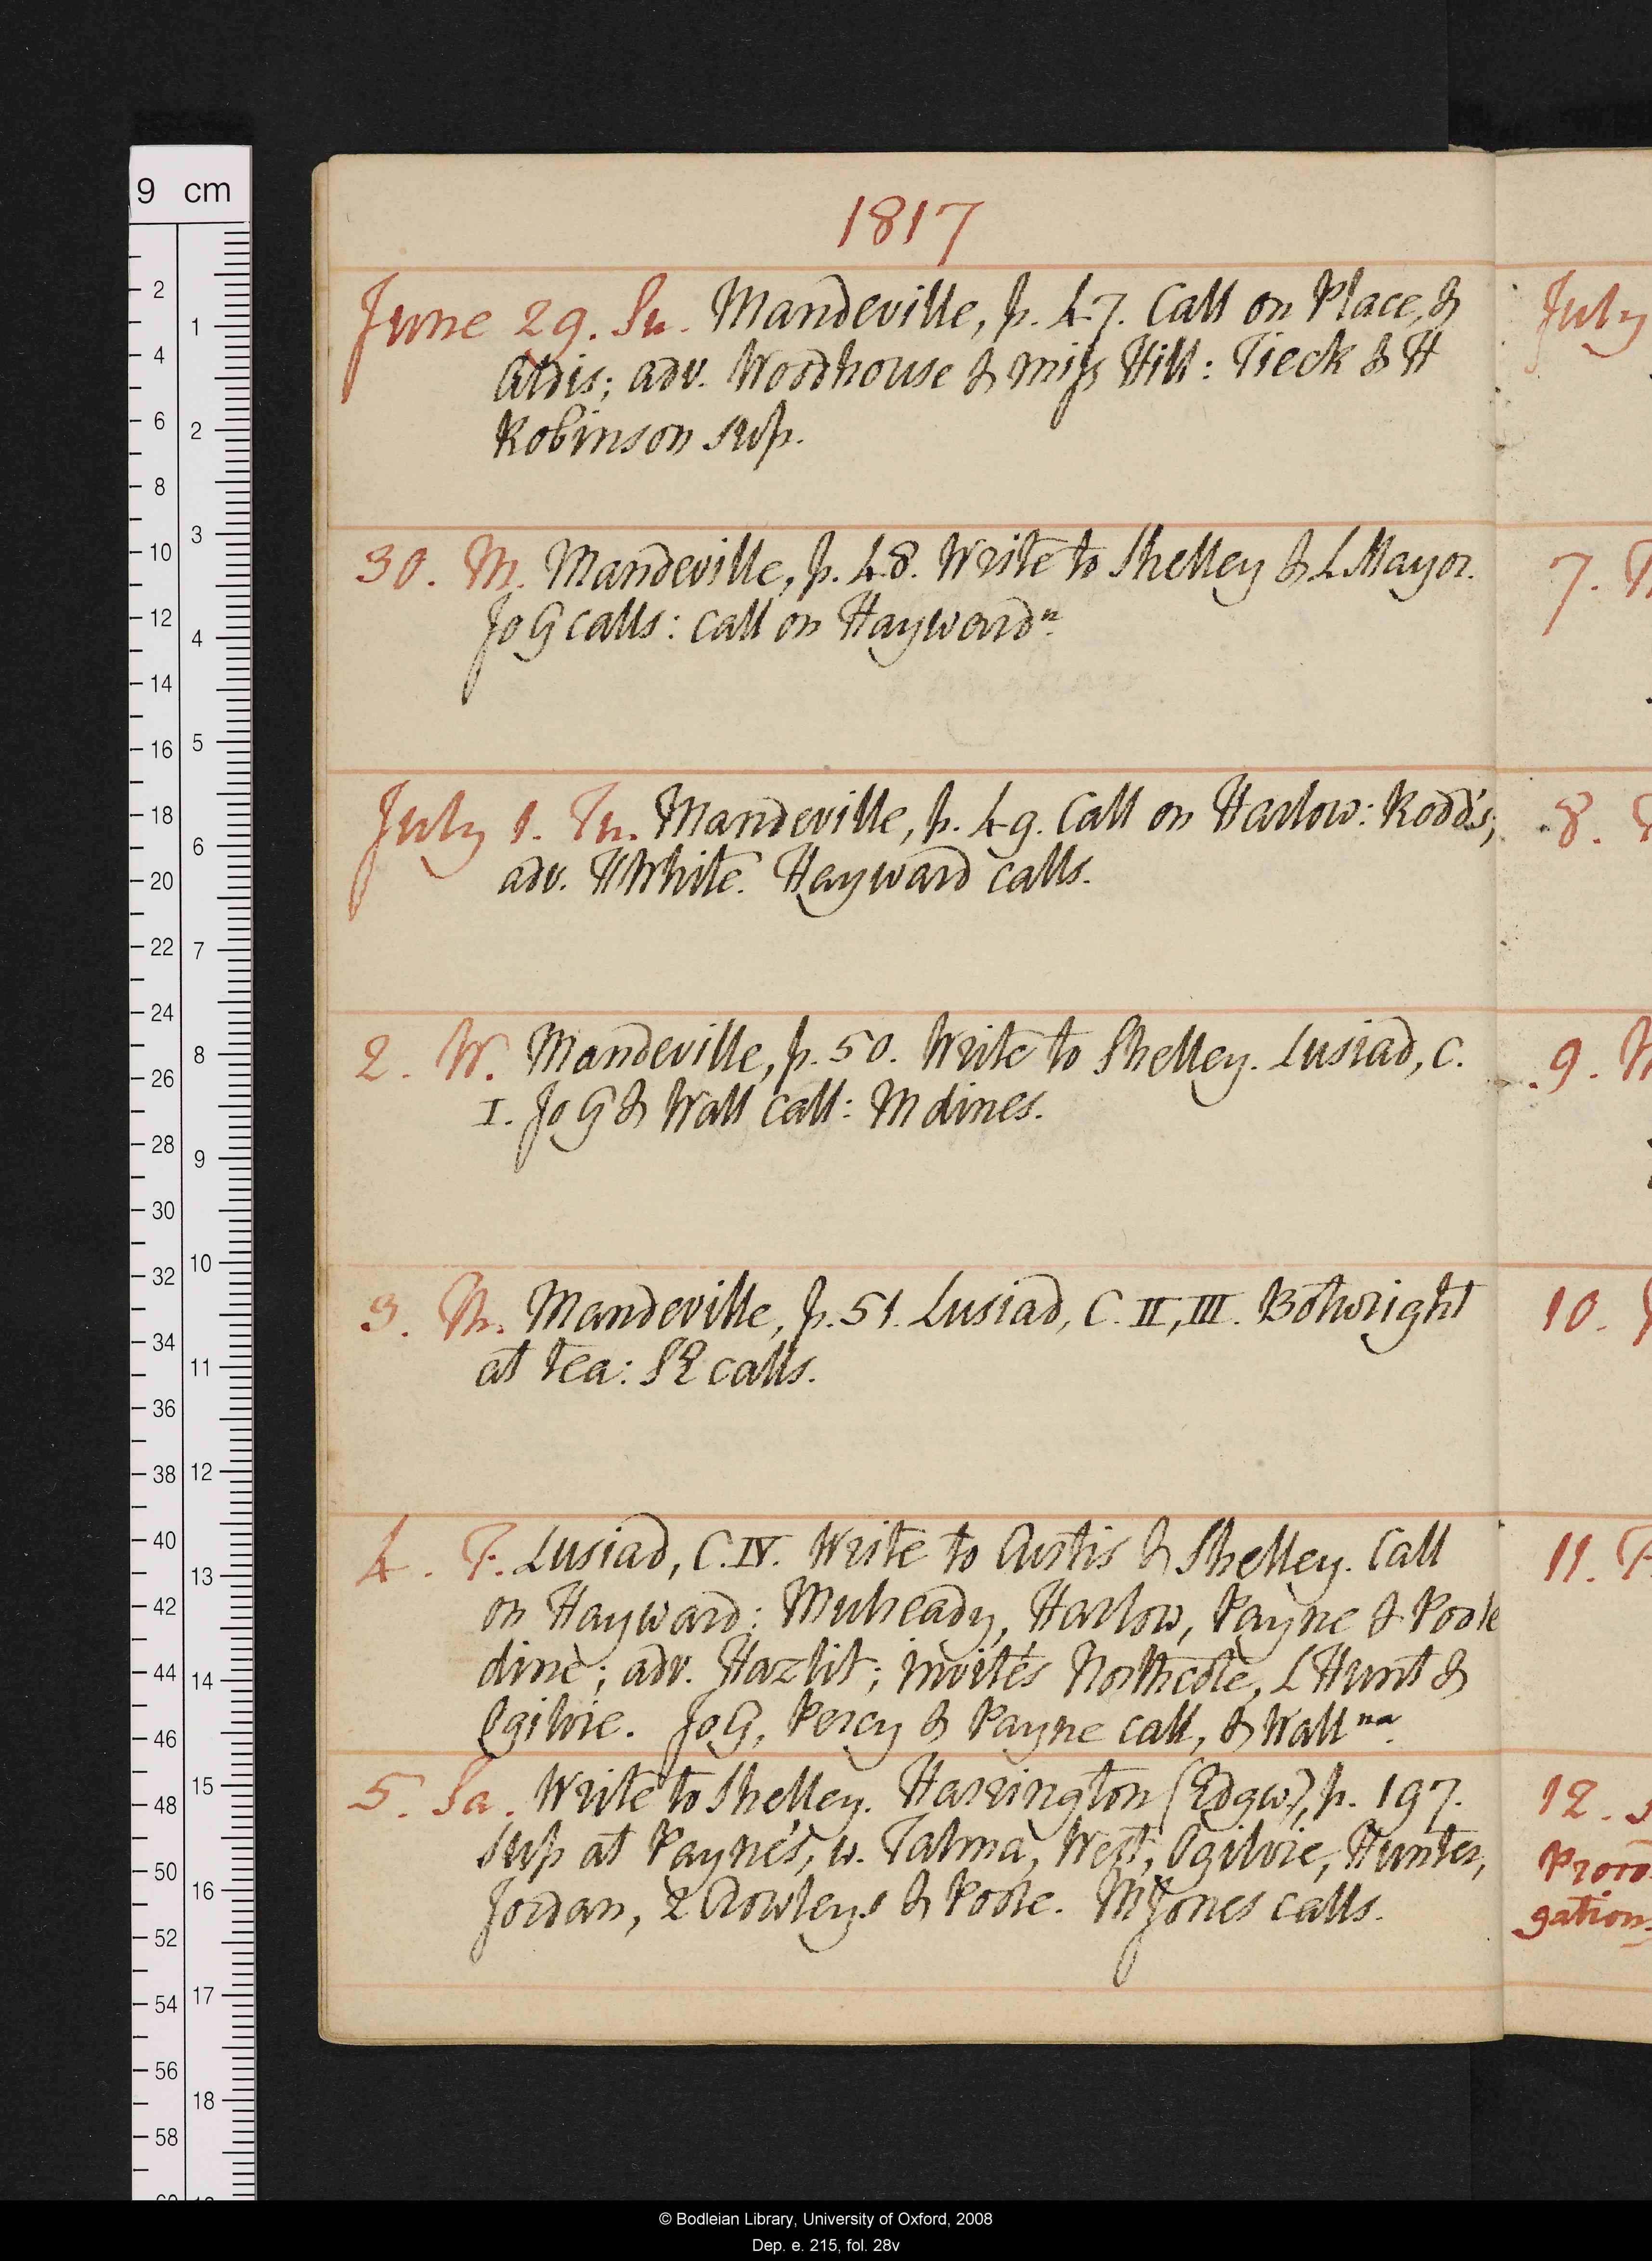 1817
June 29. Su. Mandeville, p. 47. Call on Place, &
Aldis; adv. Woodhouse & miss Hill: Tieck & H
Robinson sup.
30. M. Mandeville, p. 48. Write to Shelley & L Mayor.
Jo G calls: call on Hayward n.
July 1. Tu. Mandeville, p. 49. Call on Harlow: Rodd's;
adv. H White. Hayward calls.
2. W. Mandeville, p. 50. Write to Shelley. Lusiad, C.
I. Jo G & Wall call: M dines.
3. Th. Mandeville, p. 51. Lusiad, C. II, III. Botwright
at tea: S E calls.
4. F. Lusiad, C. IV. Write to Curtis & Shelley. Call
on Hayward: Mulready, Harlow, Payne & Poole
dine; adv. Hazlit; invités Northcote, L Hunt &
Ogilvie. Jo G, Percy & Payne call, & Wall na.
5. Sa. Write to Shelley. Harrington (Edgw), p. 197.
Sup at Payne's, w. Talma, West, Ogilvie, Hunter,
Jordan, 2 Rowleys & Poole. M Jones calls.
July
7.
8.
9.
10.
11. F
12.
Proro
gation
9 cm
2 4 6 8 10 12 14 16 18 20 22 24 26 28 30 32 34 36 38 40 42 44 46 48 50 52 54 56 58
1 2 3 4 5 6 7 8 9 10 11 12 13 14 15 16 17 18
© Bodleian Library, University of Oxford, 2008
Dep. e. 215, fol. 28v